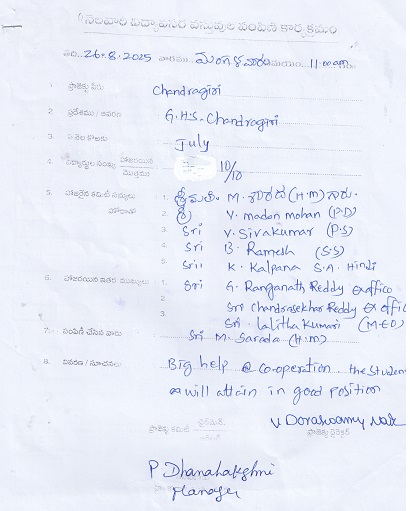 నెలవారి విద్యావసర వస్తువుల పంపిణి కార్యక్రమం
తేది..26-8-2025 వారము..మంగళవారం సమయం 11.00am
1. ప్రాజెక్టు పేరు Chandragiri
2. ప్రదేశము / వివరం G.H.S. Chandragiri
3. ఏ నెల కొరకు July
4. విద్యార్థుల సంఖ్య హాజరయిన / మొత్తము 10/10
5. హాజరైన కమిటీ సభ్యులు 1. శ్రీమతి M. శారద (H.M) గారు.
హోదాతో 2. శ్రీ V. madan mohan (P.D)
3. Sri V. Sivakumar (P.S)
4. Sri B. Ramesh (S.S)
5. Sri K. Kalpana S.A. Hindi
6. హాజరయిన ఇతర ముఖ్యులు 1. Sri G. Ranganath Reddy Ex office
2. Sri Chandrasekhar Reddy Ex office
3. Sri. Lalitha Kumari (M.E.O)
7. పంపిణీ చేసిన వారు Sri M. Sarada (H.M)
8. వివరణ / సూచనలు Big help @ co-operation the student
will attain in good position
ప్రాజెక్టు కమిటీ చైర్మన్
ప్రాజెక్టు డైరెక్టర్
P Dhanalakshmi
Manager